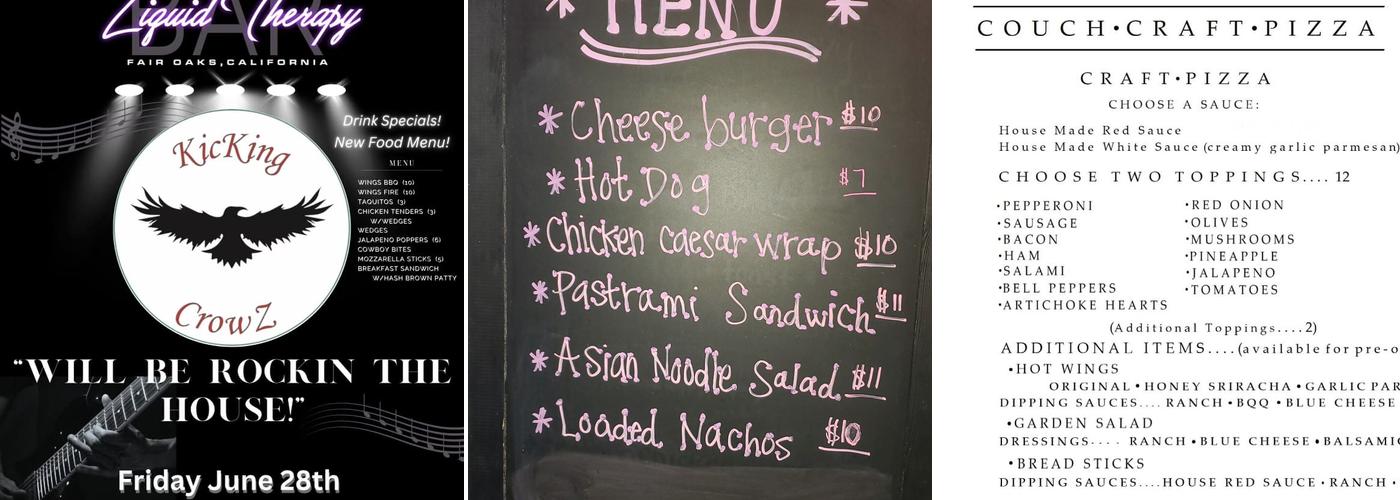 BAR
Liquid Therapy
FAIR OAKS, CALIFORNIA
Drink Specials!
New Food Menu!
MENU
WINGS BBQ (10)
WINGS FIRE (10)
TAQUITOS (3)
CHICKEN TENDERS (3)
W/WEDGES
WEDGES
JALAPENO POPPERS (6)
COWBOY BITES
MOZZARELLA STICKS (5)
BREAKFAST SANDWICH
W/HASH BROWN PATTY
KicKing
CrowZ
"WILL BE ROCKIN THE
HOUSE!"
Friday June 28th
* MENU *
* Cheese burger $10
* Hot Dog $7
* Chicken caesar wrap $10
* Pastrami Sandwich $11
* Asian Noodle Salad $11
* Loaded Nachos $10
COUCH•CRAFT•PIZZA
CRAFT•PIZZA
CHOOSE A SAUCE:
House Made Red Sauce
House Made White Sauce (creamy garlic parmesan)
CHOOSE TWO TOPPINGS.... 12
•PEPPERONI
•SAUSAGE
•BACON
•HAM
•SALAMI
•BELL PEPPERS
•ARTICHOKE HEARTS
•RED ONION
•OLIVES
•MUSHROOMS
•PINEAPPLE
•JALAPENO
•TOMATOES
(Additional Toppings....2)
ADDITIONAL ITEMS....(available for pre-o
•HOT WINGS
ORIGINAL •HONEY SRIRACHA •GARLIC PAR
DIPPING SAUCES.... RANCH •BQQ •BLUE CHEESE
•GARDEN SALAD
DRESSINGS.... RANCH •BLUE CHEESE •BALSAMIC
•BREAD STICKS
DIPPING SAUCES....HOUSE RED SAUCE •RANCH •